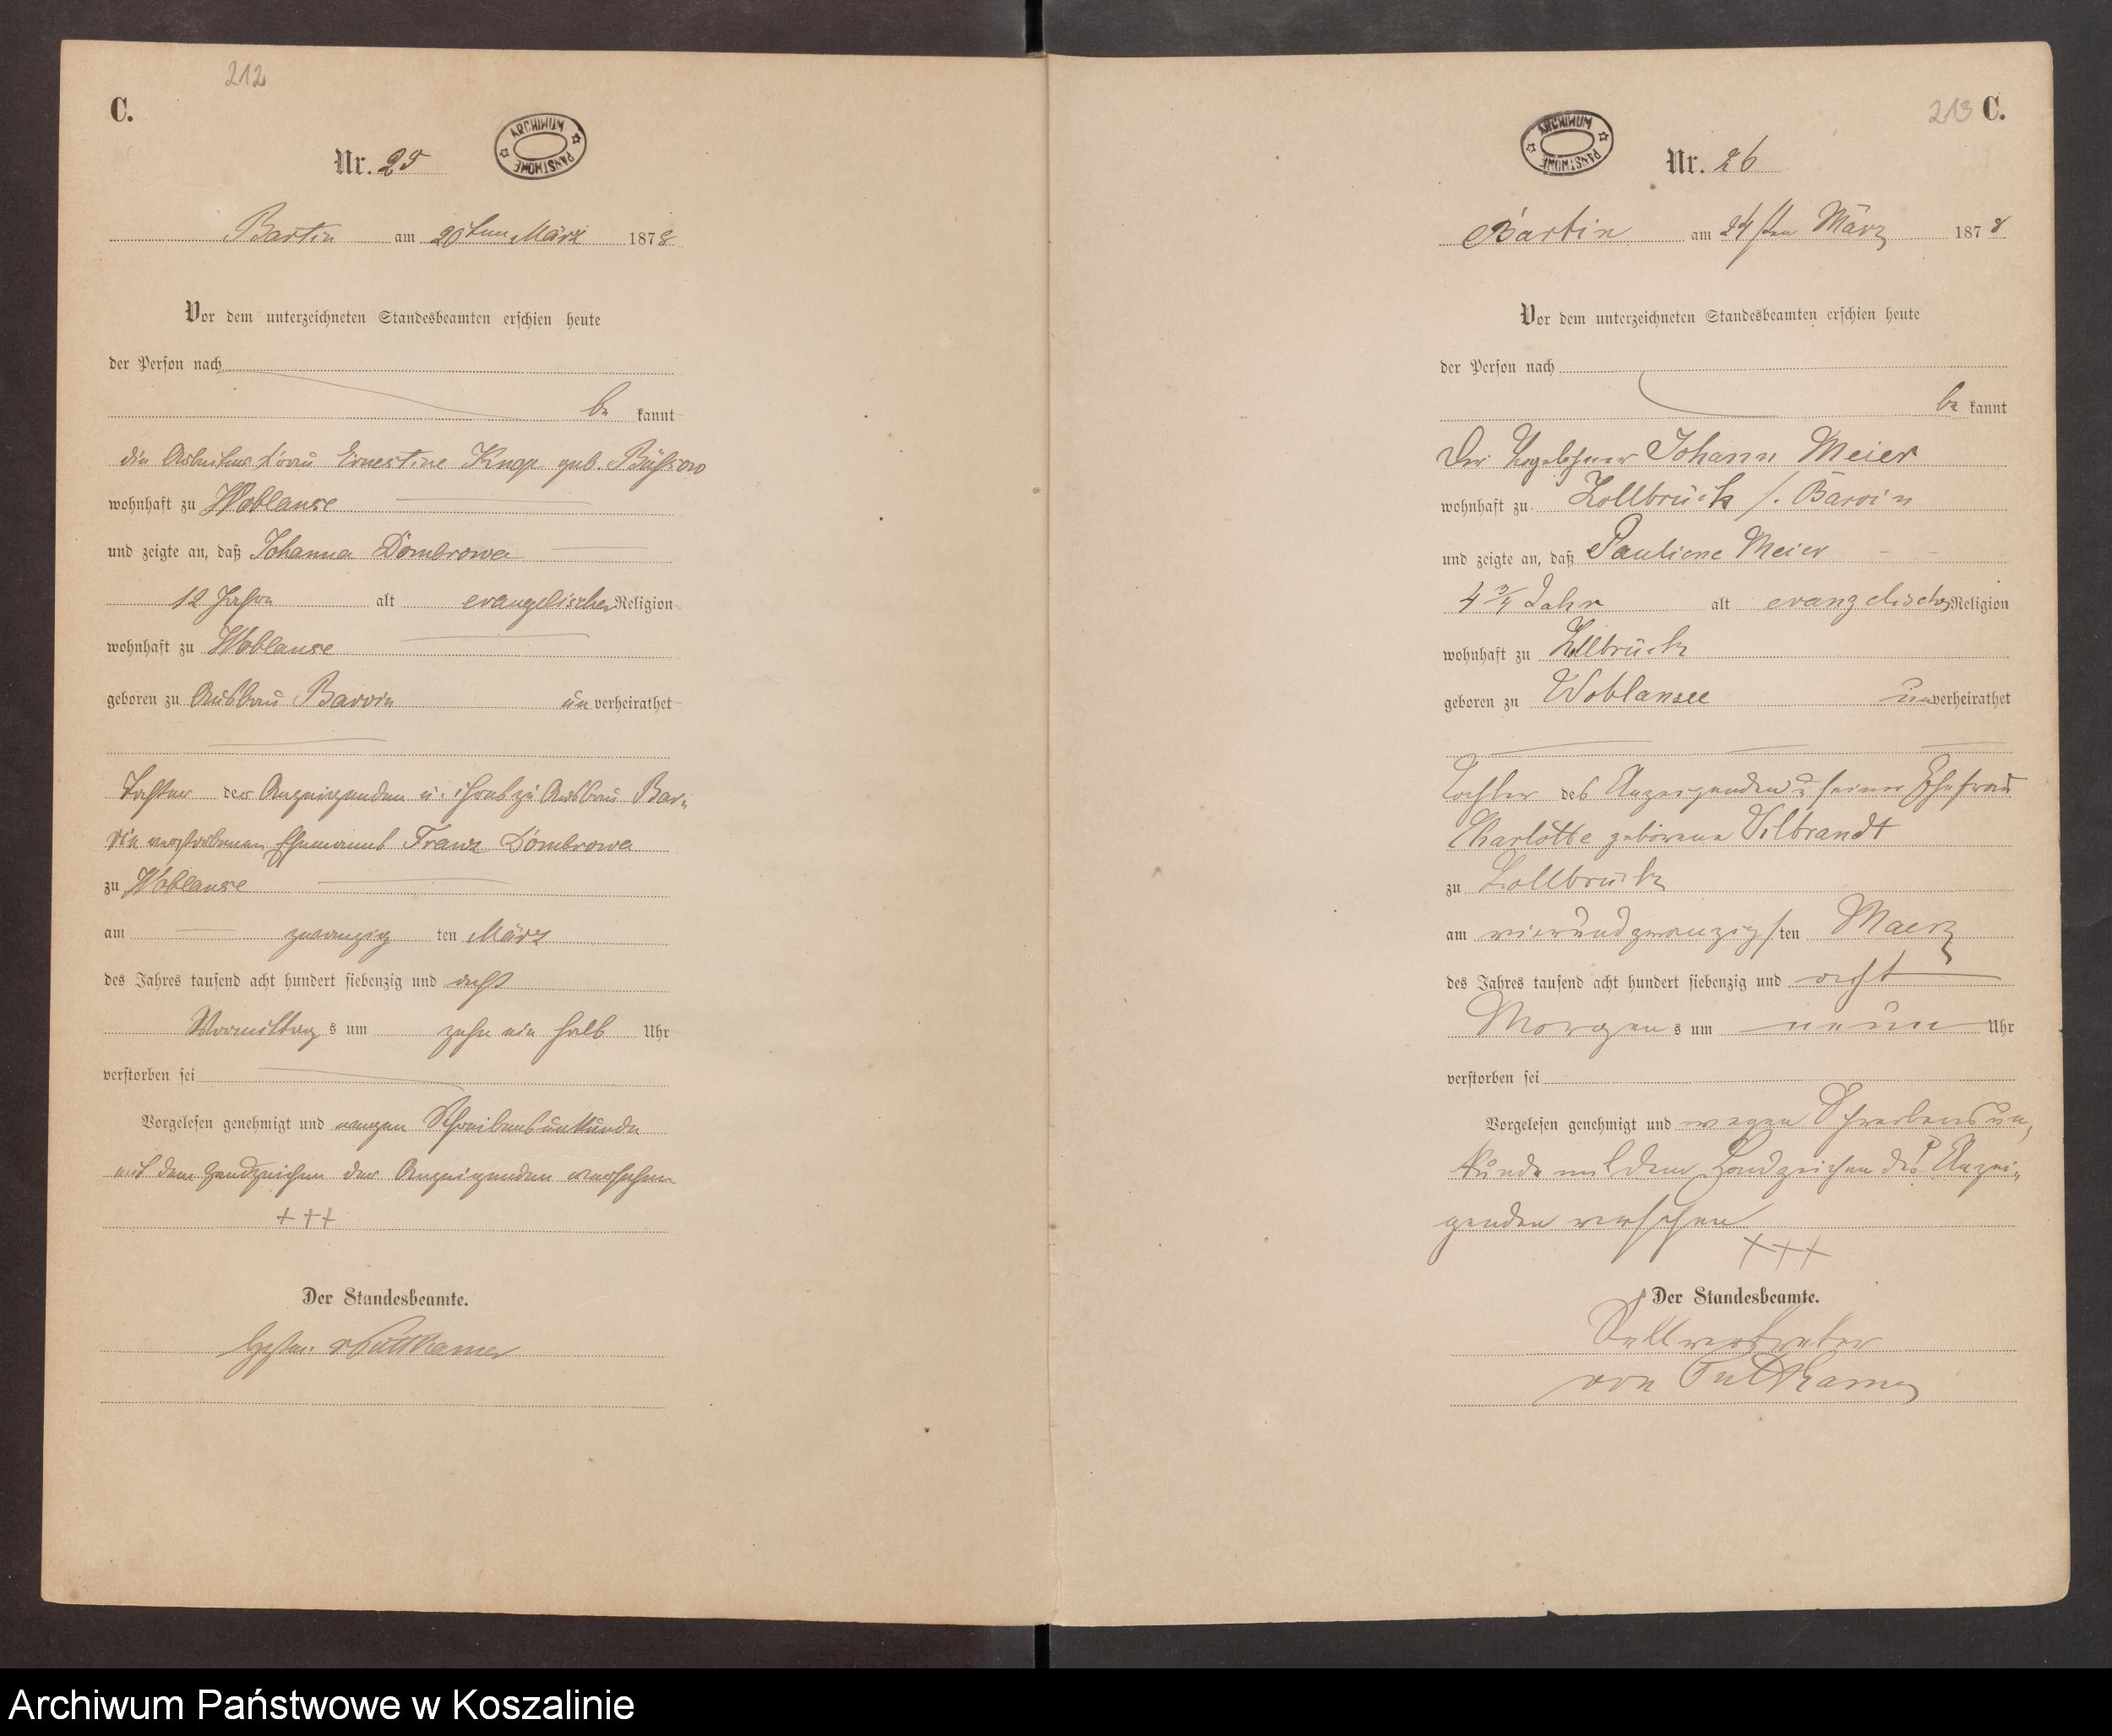 212
C.
ARCHIWUM PAŃSTWOWE
Nr. 25
Bartin am 20ten März 1878
Vor dem unterzeichneten Standesbeamten erschien heute
der Person nach
be kannt
die Arbeiter Frau Ernestine Knop geb. Büssow
wohnhaft zu Woblanse
und zeigte an, daß Johanna Dombrowa
12 Jahre alt evangelischer Religion
wohnhaft zu Woblanse
geboren zu Ausbau Barvin un verheirathet
Tochter der Anzeigenden u. ihres zu Ausbau Bar-
vin verstorbenen Ehemanns Franz Dombrowa
zu Woblanse
am zwanzig ten März
des Jahres tausend acht hundert siebenzig und acht
Vormittag s um zehn ein halb Uhr
verstorben sei
Vorgelesen genehmigt und wegen Schreibensunkunde
mit dem Handzeichen der Anzeigenden versehen
+++
Der Standesbeamte.
v Puttkamer
213 C.
ARCHIWUM PAŃSTWOWE
Nr. 26
Bartin am 24sten März 1878
Vor dem unterzeichneten Standesbeamten erschien heute
der Person nach
be kannt
Der Tagelöhner Johann Meier
wohnhaft zu Zollbrück /. Barvin
und zeigte an, daß Pauliene Meier
4 3/4 Jahr alt evangelischer Religion
wohnhaft zu Zollbrück
geboren zu Woblansee un verheirathet
Tochter des Anzeigenden u seiner Ehefrau
Charlotte geborene Vilbrandt
zu Zollbrück
am vierundzwanzigs ten Maerz
des Jahres tausend acht hundert siebenzig und acht
Morgen s um neun Uhr
verstorben sei
Vorgelesen genehmigt und wegen Schreibensun-
kunde mit dem Handzeichen des Anzei-
genden versehen
+++
Der Standesbeamte.
Stellvertreter
von Puttkamer
Archiwum Państwowe w Koszalinie